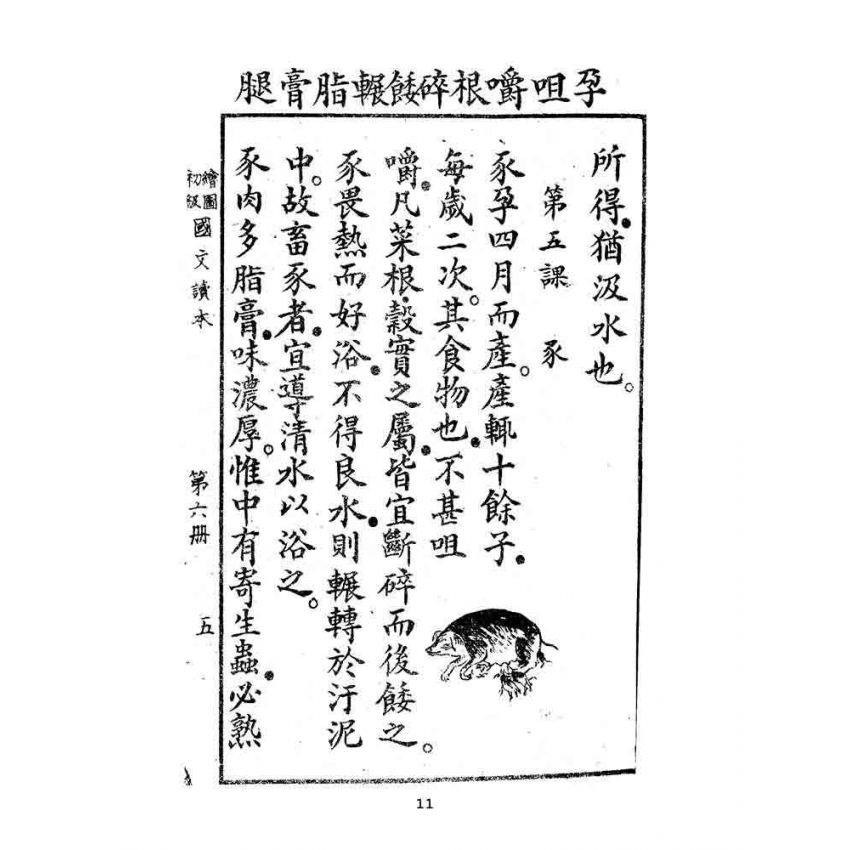 孕咀嚼根碎餧輾脂膏腿
所得●猶汲水也。
第五課　豕
豕孕四月而產。產輒十餘子●
每歲二次。其食物也●不甚咀
嚼●凡菜根●穀實之屬●皆宜斷碎而後餧之。
豕畏熱而好浴●不得良水●則輾轉於汙泥
中。故畜豕者●宜導清水以浴之。
豕肉多脂膏●味濃厚。惟中有寄生蟲●必熟
繪圖
初級
國文讀本
第六册
五
11